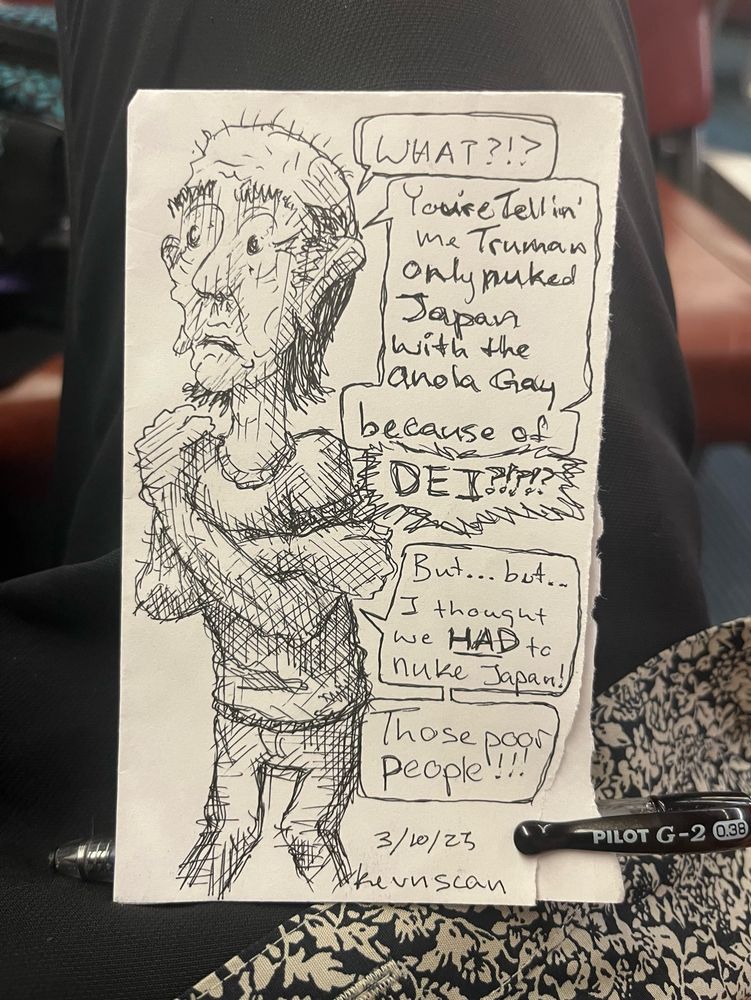 WHAT?!?
You're Tellin'
me Truman
only nuked
Japan
with the
anola Gay
because of
DEI?!?!?
But... but..
I thought
we HAD to
nuke Japan!
Those poor
People!!!
3/10/25
kevnscan
PILOT G-2 0.38